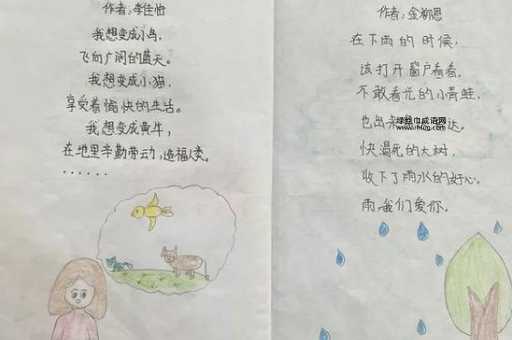 作者:李佳怡
我想变成小鸟,
飞向广阔的蓝天。
我想变成小猫,
享受着愉快的生活。
我想变成黄牛,
在地里辛勤劳动,造福人类。
......
作者:金柳恩
在下雨的时候,
该打开窗户看看,
不敢看光的小青蛙,
也出来
达。
快渴死的大树,
收下了雨水的好心。
雨,我们爱你。
绿丝巾成语网